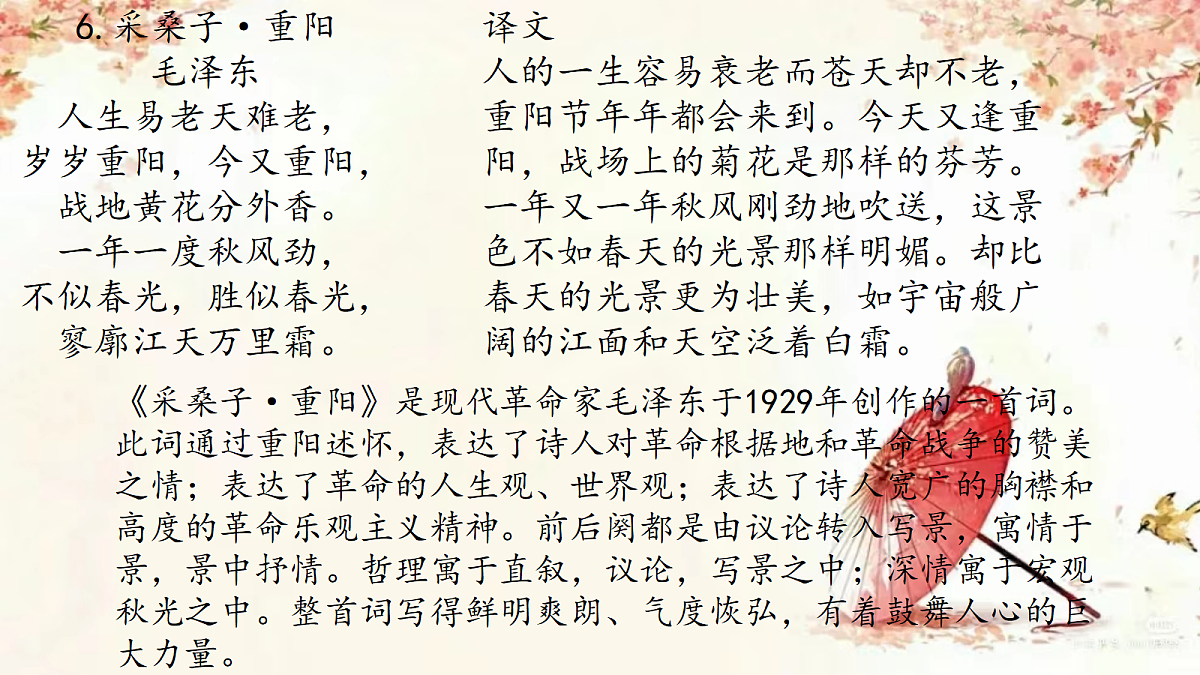 6.采桑子·重阳
毛泽东
人生易老天难老，
岁岁重阳，今又重阳，
战地黄花分外香。
一年一度秋风劲，
不似春光，胜似春光，
寥廓江天万里霜。
译文
人的一生容易衰老而苍天却不老，
重阳节年年都会来到。今天又逢重
阳，战场上的菊花是那样的芬芳。
一年又一年秋风刚劲地吹送，这景
色不如春天的光景那样明媚。却比
春天的光景更为壮美，如宇宙般广
阔的江面和天空泛着白霜。
《采桑子·重阳》是现代革命家毛泽东于1929年创作的一首词。
此词通过重阳述怀，表达了诗人对革命根据地和革命战争的赞美
之情；表达了革命的人生观、世界观；表达了诗人宽广的胸襟和
高度的革命乐观主义精神。前后阕都是由议论转入写景，寓情于
景，景中抒情。哲理寓于直叙，议论，写景之中；深情寓于宏观
秋光之中。整首词写得鲜明爽朗、气度恢弘，有着鼓舞人心的巨
大力量。